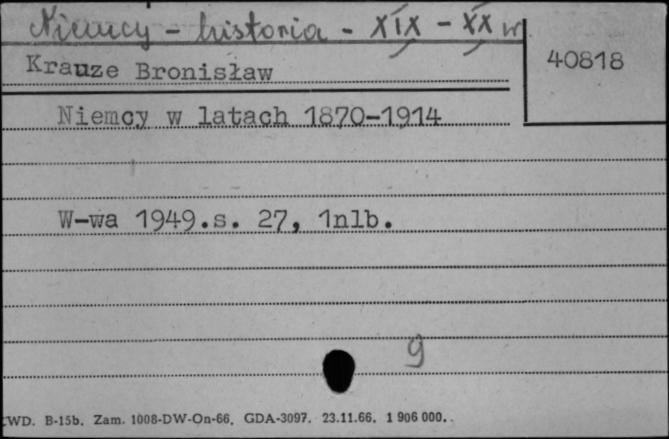 Niemcy - historia - XIX - XX w.
40818
Krauze Bronisław
Niemcy w latach 1870-1914
W-wa 1949.s. 27, 1nlb.
9
CWD. B-15b. Zam. 1008-DW-On-66. GDA-3097. 23.11.66. 1 906 000.